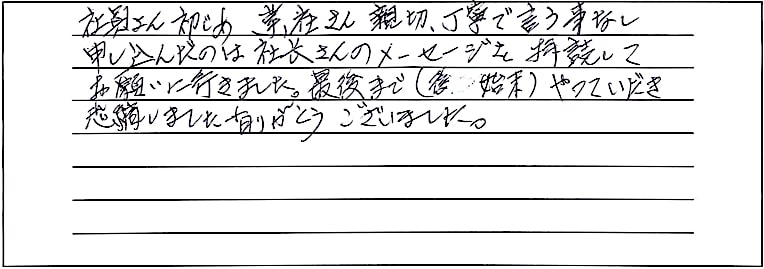 社員さん初じめ 業社さん 親切、丁寧で言う事なし
申し込んだのは社長さんのメーセージを拝読して
お願いに行きました。最後まで(後 始末)やっていだき
感謝しました有りがとうございました。